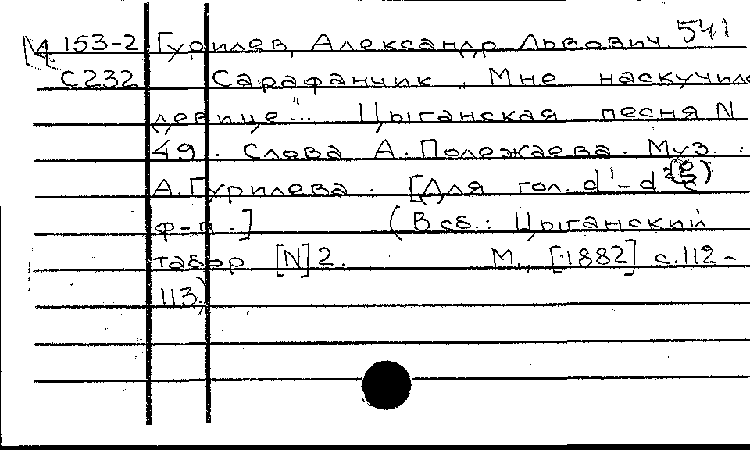 М 153-2 Гурилев, Александр Львович. 541
С232 Сарафанчик „Мне наскучило
девице"... Цыганская песня N
49. Слова А. Полежаева. Муз.
А. Гурилева. [Для гол. d¹-d²
ф-п.] (В сб.: Цыганский
табор [N] 2. М., [1882] с.112-
113.)